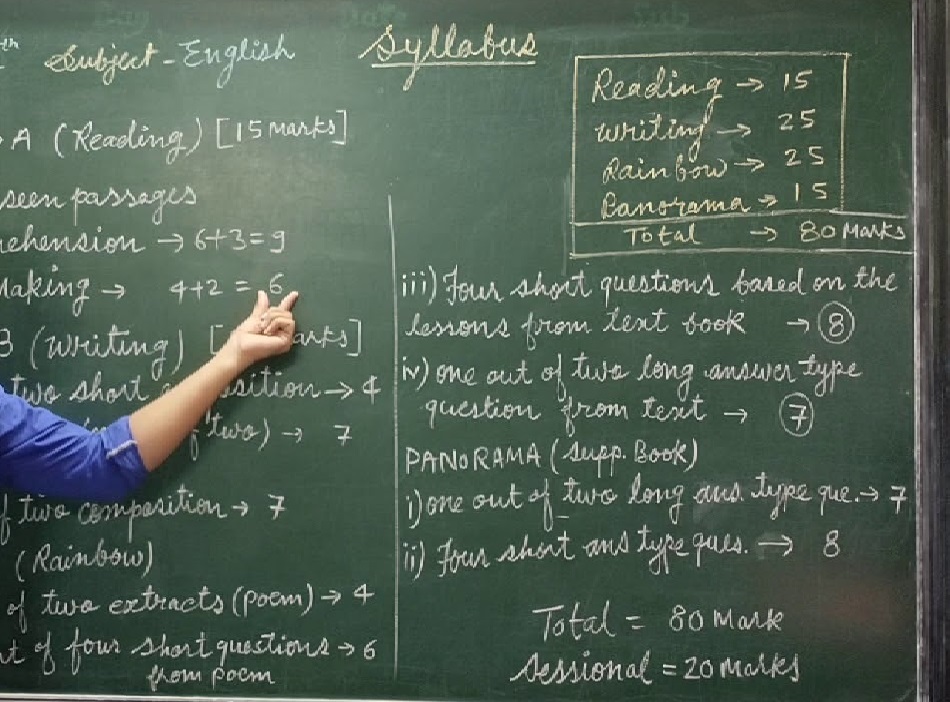 th Subject - English Syllabus
A (Reading) [15 Marks]
seen passages
ehension → 6+3=9
Making → 4+2 = 6
B (Writing) [ arks]
two short sition → 4
two) → 7
f two composition → 7
(Rainbow)
of two extracts (poem) → 4
t of four short questions → 6
from poem
Reading → 15
Writing → 25
Rainbow → 25
Panorama → 15
Total → 80 Marks
iii) Four short questions based on the
lessons from text book → 8
iv) one out of two long answer type
question from text → 7
PANORAMA (Supp. Book)
i) one out of two long ans. type que. → 7
ii) Four short ans type ques. → 8
Total = 80 Mark
Sessional = 20 Marks